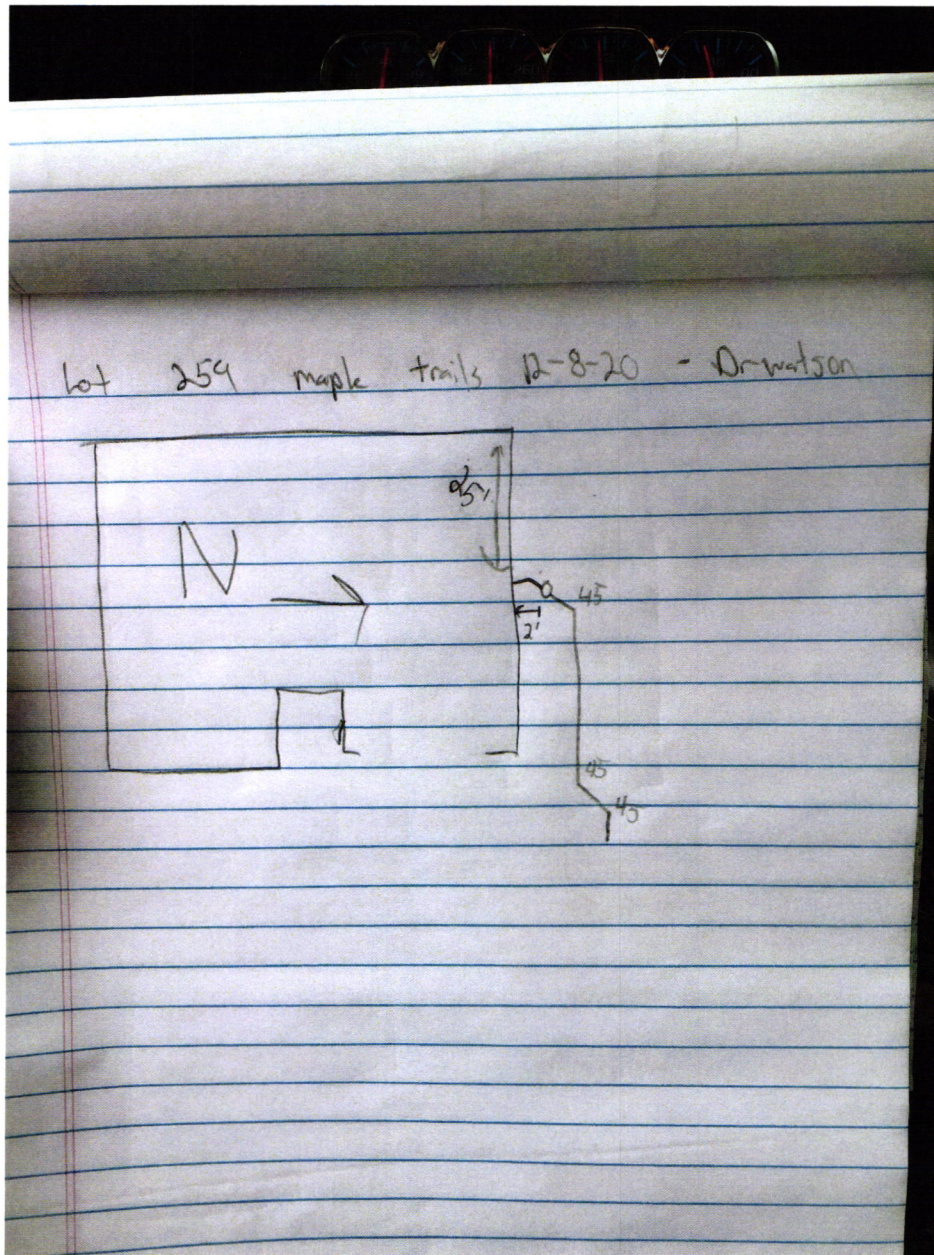 Lot 259 maple trails 12-8-20 - Dr-watson
25'
N
45
2'
45
45